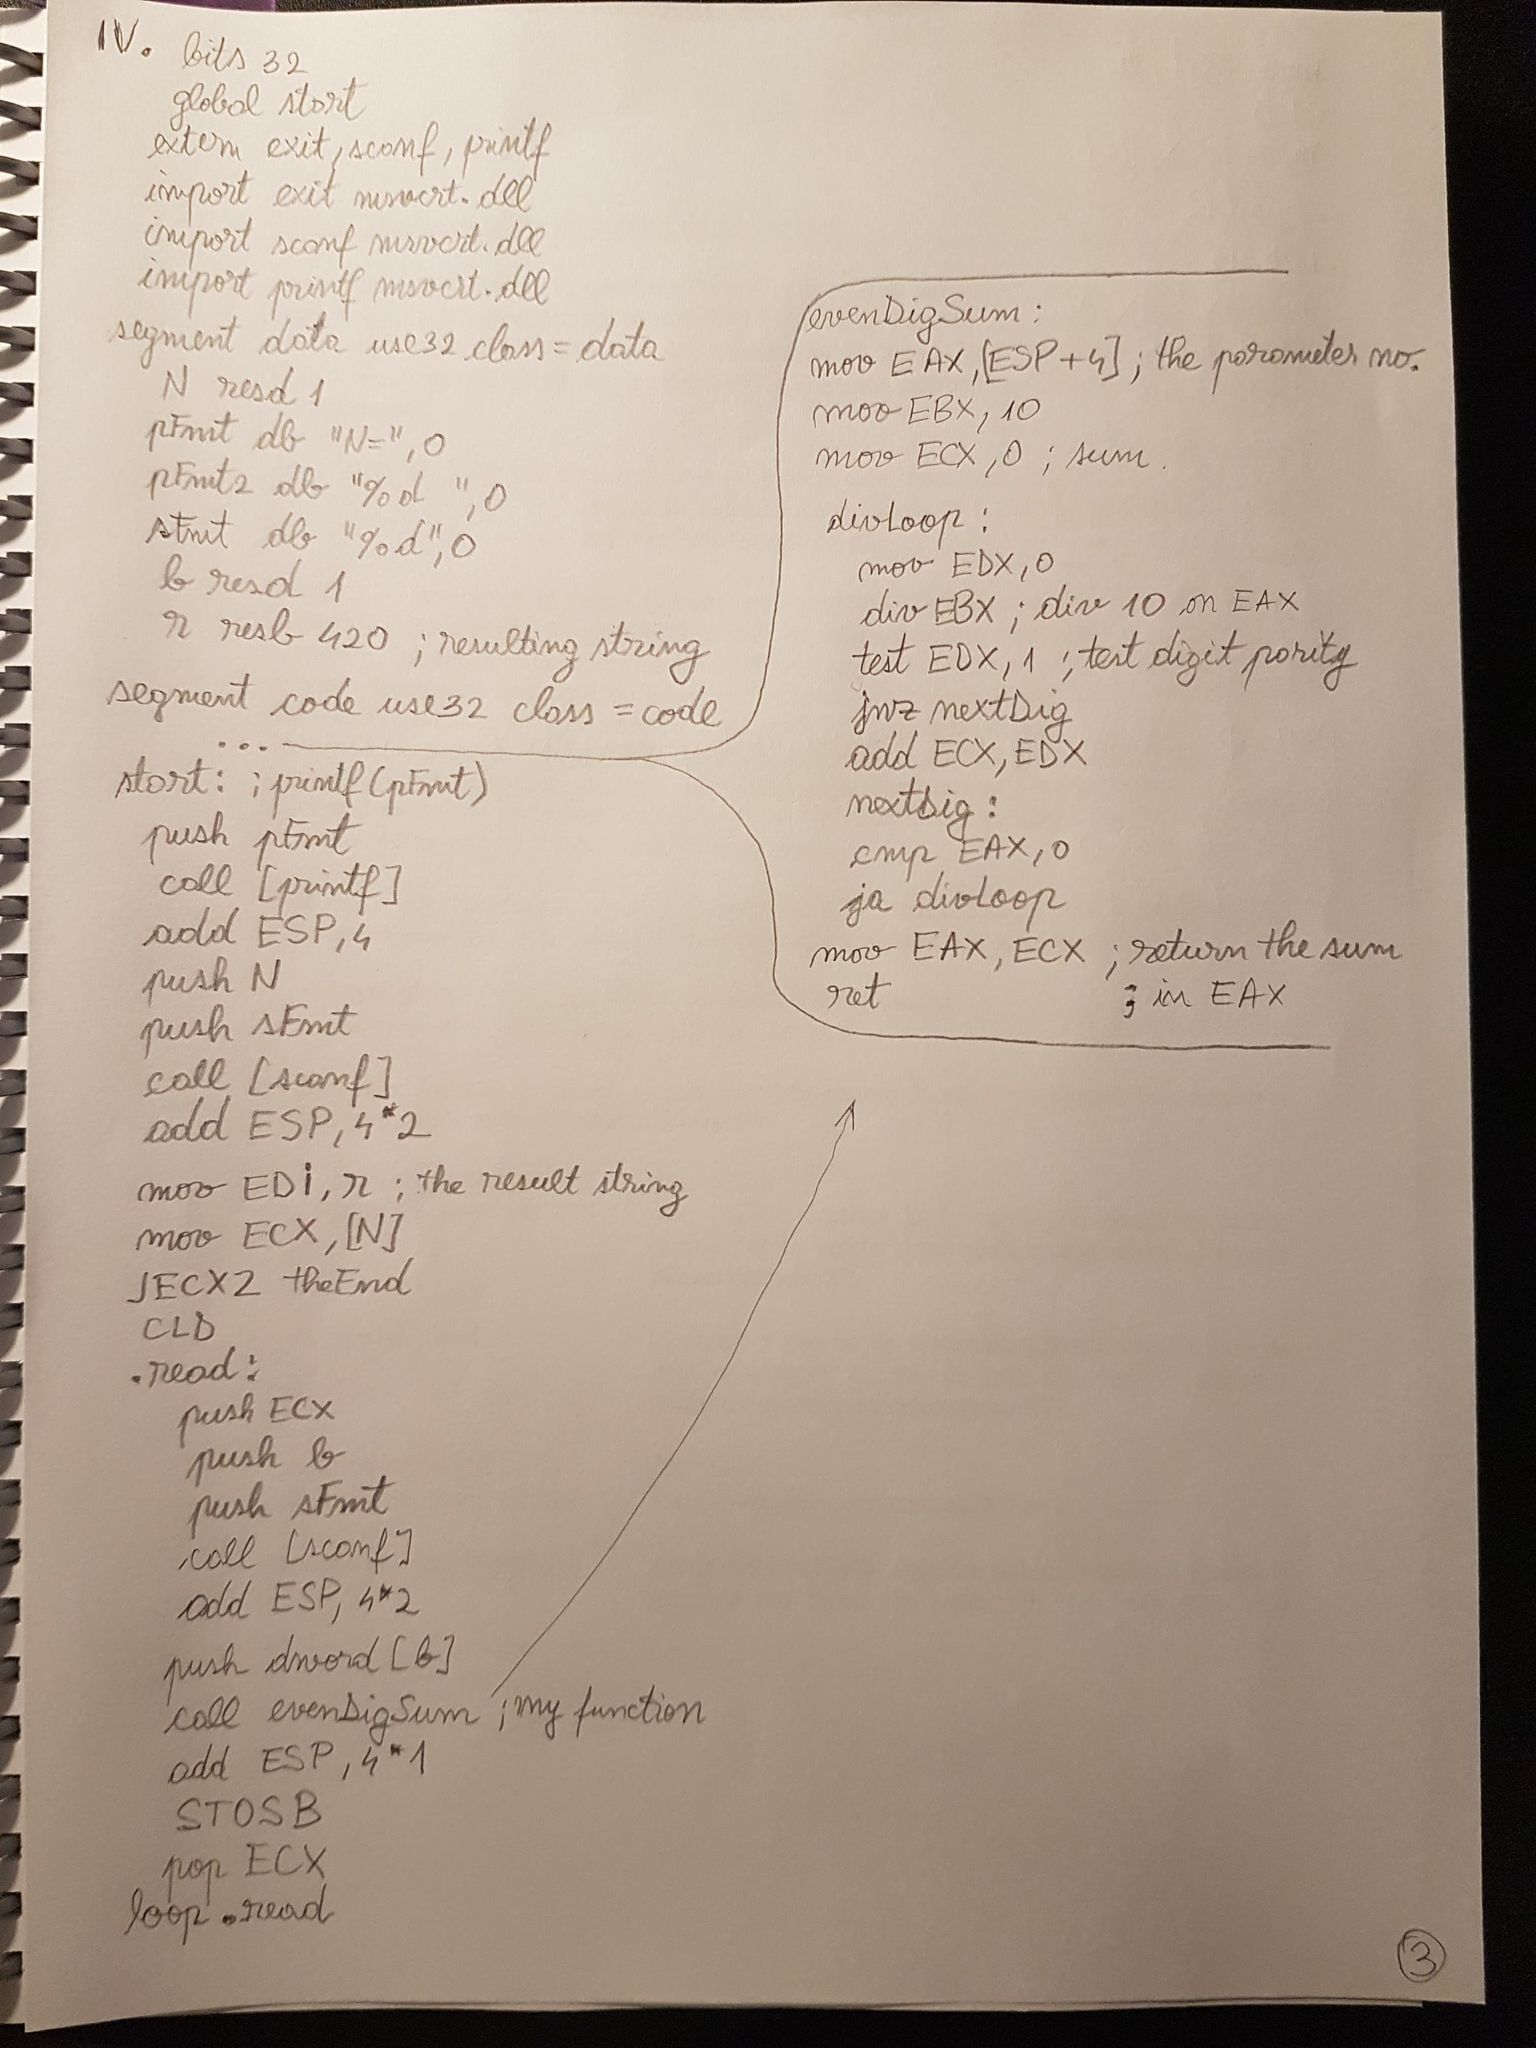 IV. bits 32
global start
extern exit, scanf, printf
import exit msvcrt.dll
import scanf msvcrt.dll
import printf msvcrt.dll
segment data use32 class=data
N resd 1
pFmt db "N=", 0
pFmt2 db "%d ", 0
sFmt db "%d", 0
b resd 1
r resb 420 ; resulting string
segment code use32 class=code
...
start: ; printf(pFmt)
push pFmt
call [printf]
add ESP, 4
push N
push sFmt
call [scanf]
add ESP, 4*2
mov EDI, r ; the result string
mov ECX, [N]
JECXZ theEnd
CLD
.read:
push ECX
push b
push sFmt
call [scanf]
add ESP, 4*2
push dword [b]
call evenDigSum ; my function
add ESP, 4*1
STOSB
pop ECX
loop .read
evenDigSum:
mov EAX, [ESP+4] ; the parameter no.
mov EBX, 10
mov ECX, 0 ; sum.
divLoop:
mov EDX, 0
div EBX ; div 10 on EAX
test EDX, 1 ; test digit parity
jnz nextDig
add ECX, EDX
nextDig:
cmp EAX, 0
ja divLoop
mov EAX, ECX ; return the sum
ret ; in EAX
3